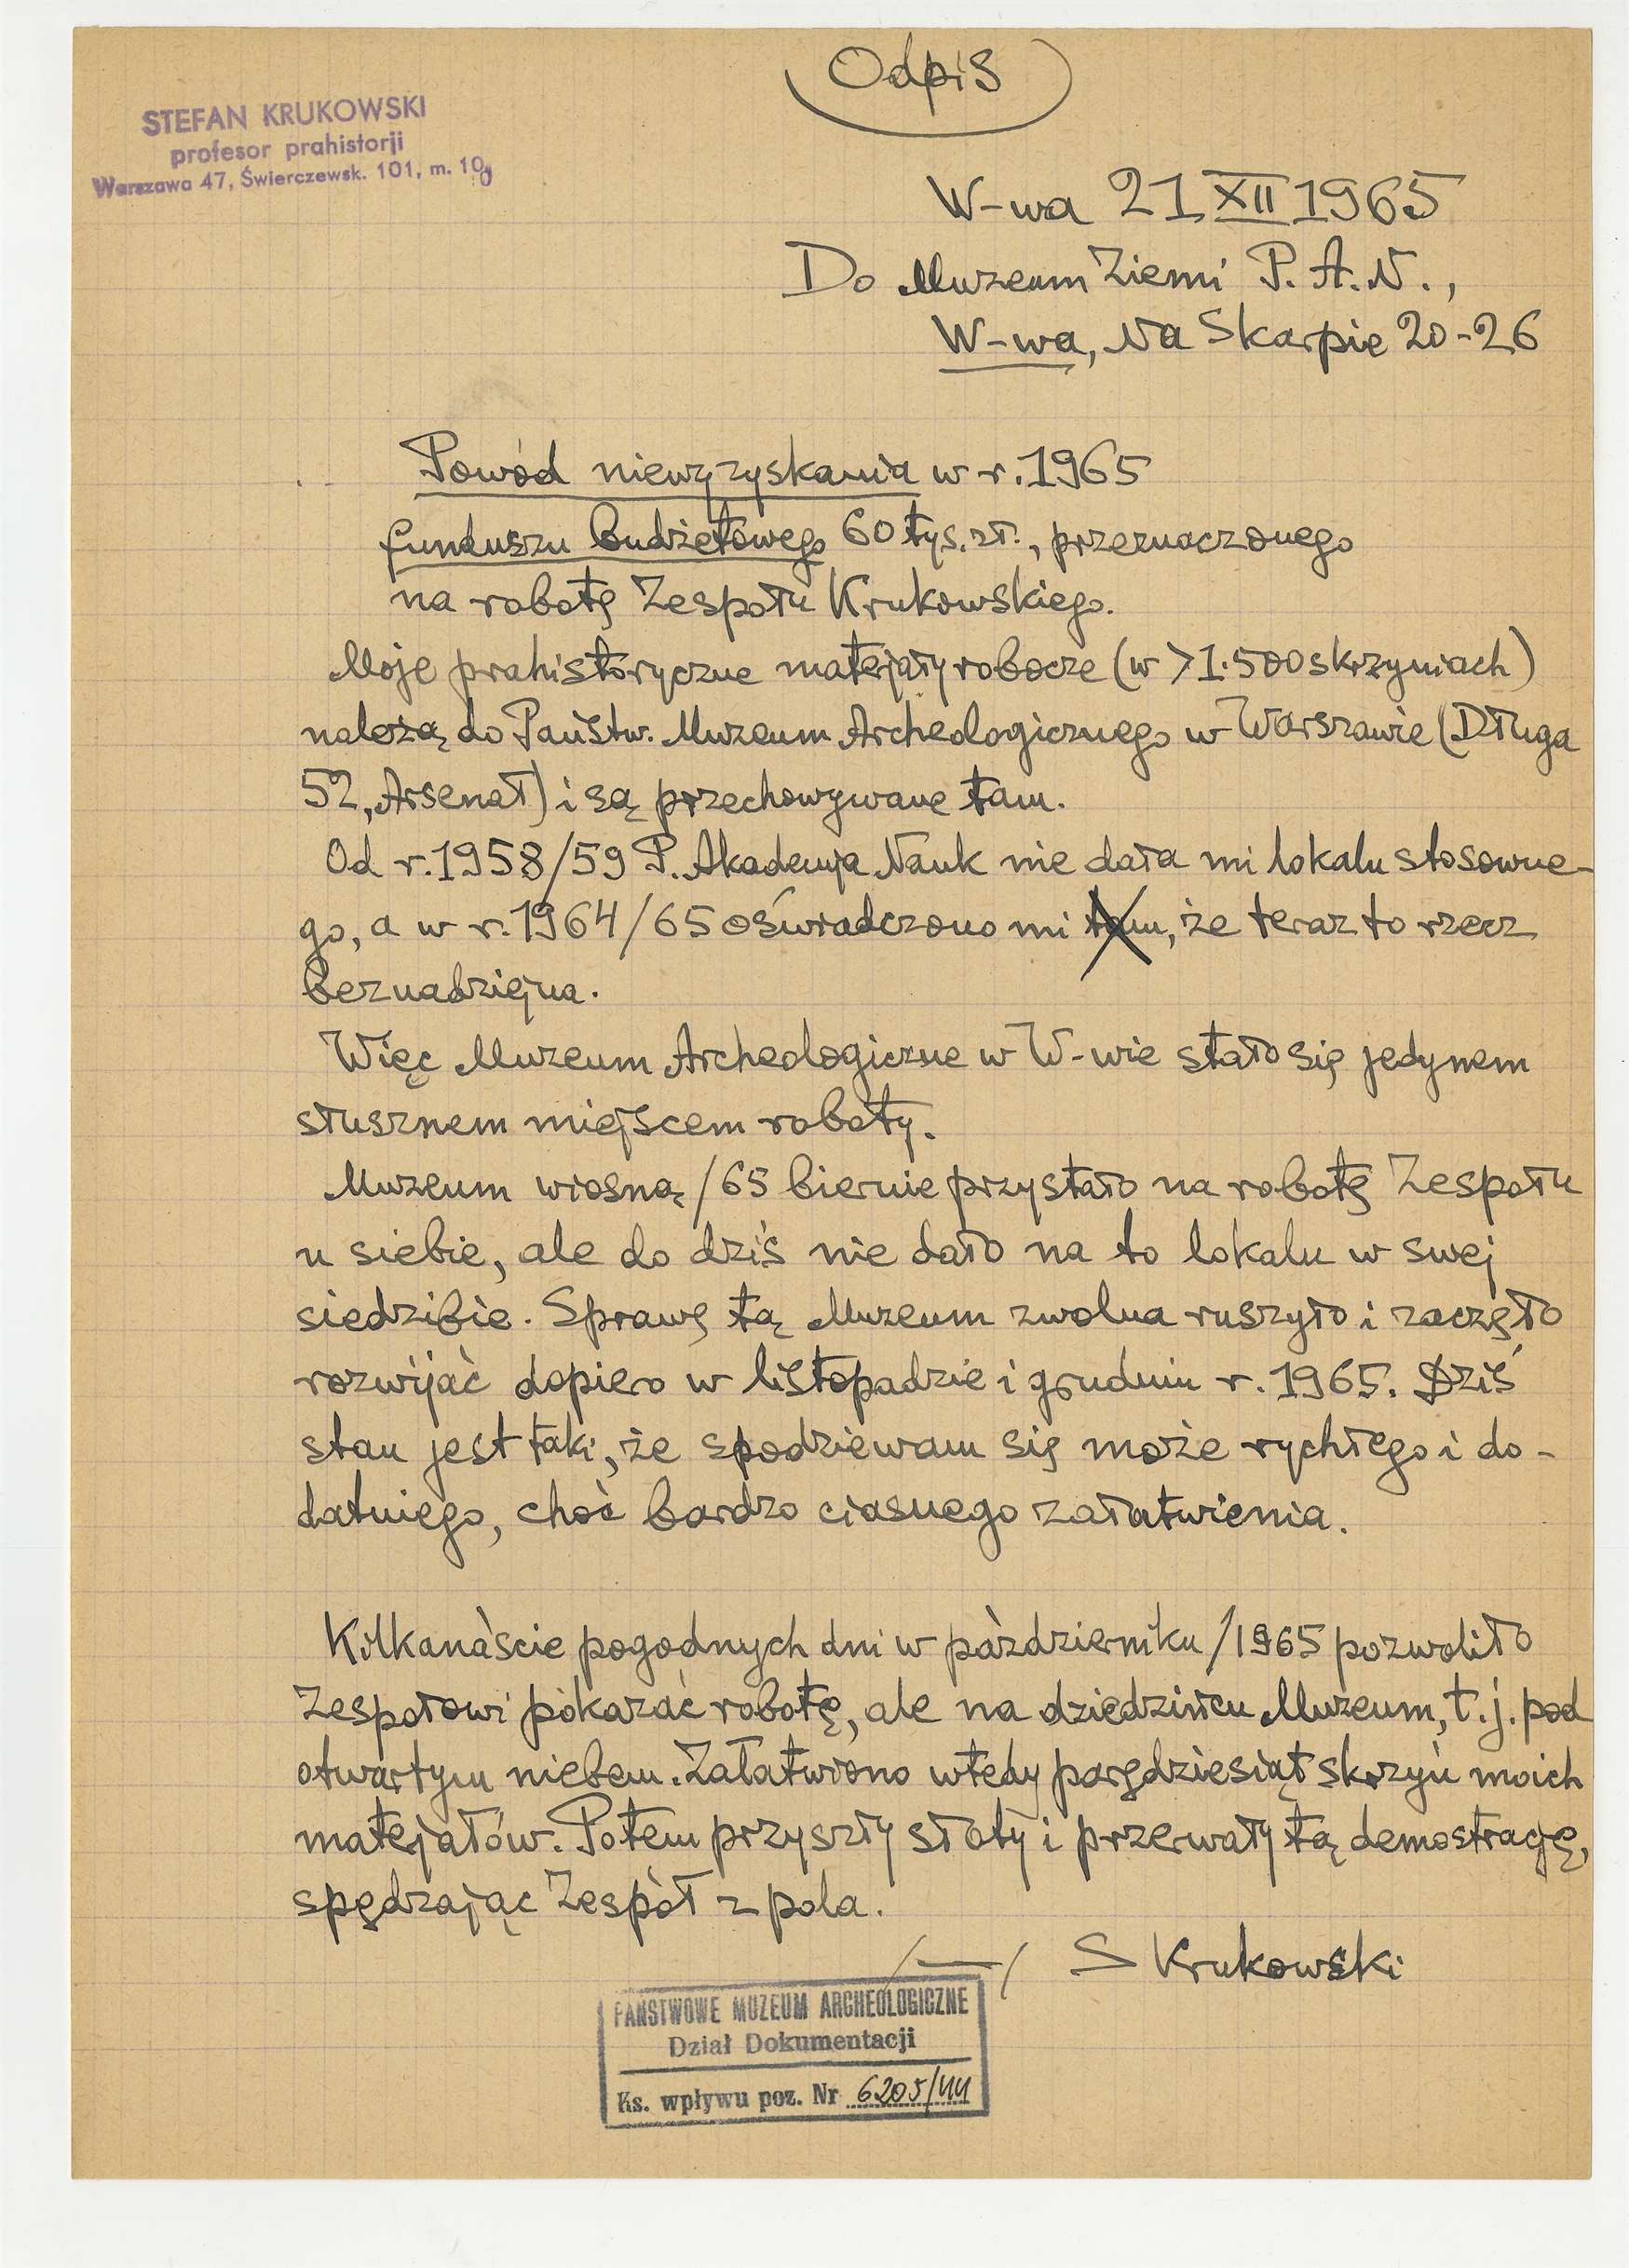 Odpis
STEFAN KRUKOWSKI
profesor prahistorji
Warszawa 47, Świerczewsk. 101, m. 10
W-wa 21 XII 1965
Do Muzeum Ziemi P. A. N.,
W-wa, Na Skarpie 20-26
Powód niewyzyskania w r. 1965
funduszu budżetowego 60 tys. zł., przeznaczonego
na robotę Zespołu Krukowskiego.
Moje prahistoryczne materjały robocze (w > 1.500 skrzyniach)
należą do Państw. Muzeum Archeologicznego w Warszawie (Długa
52, Arsenał) i są przechowywane tam.
Od r. 1958/59 P. Akademja Nauk nie dała mi lokalu stosowne-
go, a w r. 1964/65 oświadczono mi tam, że teraz to rzecz
beznadziejna.
Więc Muzeum Archeologiczne w W-wie stało się jedynem
słusznem miejscem roboty.
Muzeum wiosną /65 biernie przystało na robotę Zespołu
u siebie, ale do dziś nie dało na to lokalu w swej
siedzibie. Sprawę tą Muzeum zwolna ruszyło i zaczęło
rozwijać dopiero w listopadzie i grudniu r. 1965. Dziś
stan jest taki, że spodziewam się może rychłego i do-
datniego, choć bardzo ciasnego załatwienia.
Kilkanaście pogodnych dni w październiku /1965 pozwoliło
Zespołowi pokazać robotę, ale na dziedzińcu Muzeum, t. j. pod
otwartym niebem. Załatwiono wtedy parędziesiąt skrzyń moich
materjałów. Potem przyszły słoty i przerwały tą demostrację,
spędzając Zespół z pola.
/—/ S Krukowski
PAŃSTWOWE MUZEUM ARCHEOLOGICZNE
Dział Dokumentacji
Ks. wpływu poz. Nr 6205/